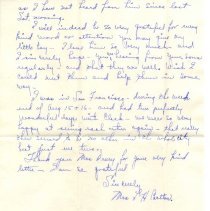 as I have not heard from him since last
Sat. morning.
I will indeed be so very grateful for any
kind word or attention you may give my
little boy – I love him so very much and
I sincerely hope you'll hear from your sons
regularly – and what they are well. I wish I
could visit them and help them in some
way.
I was in San Francisco – during the week
end of Aug 15 + 16 – and had two perfectly
wonderful days with Chuck – we were so very
happy at seeing each other again – that
they seemed to be no other in the
but just we two.
Thank you Mrs. for your very kind
letter – I am so grateful
Sincerely,
Mrs